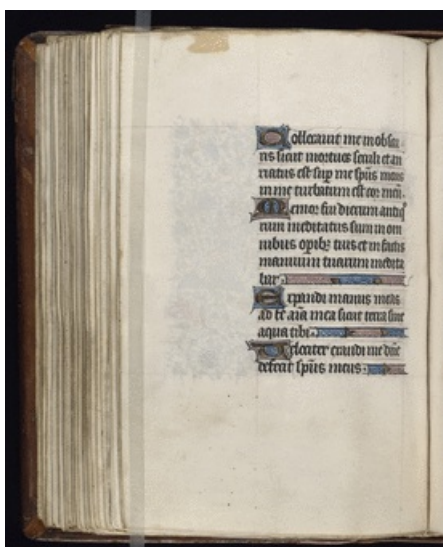 Collocauit me in obscu
ris sicut mortuos seculi et an
xiatus est sup me sp̄us meus
in me turbatum est cor meū.
Memor fui dierum antiqͦ
rum meditatus sum in om
nibus opibꝫ tuis et in factis
manuum tuarum medita
bar.
Expandi manus meas
ad te aīa mea sicut terra sine
aqua tibi.
Velociter exaudi me dn̄e
defecit sp̄us meus.